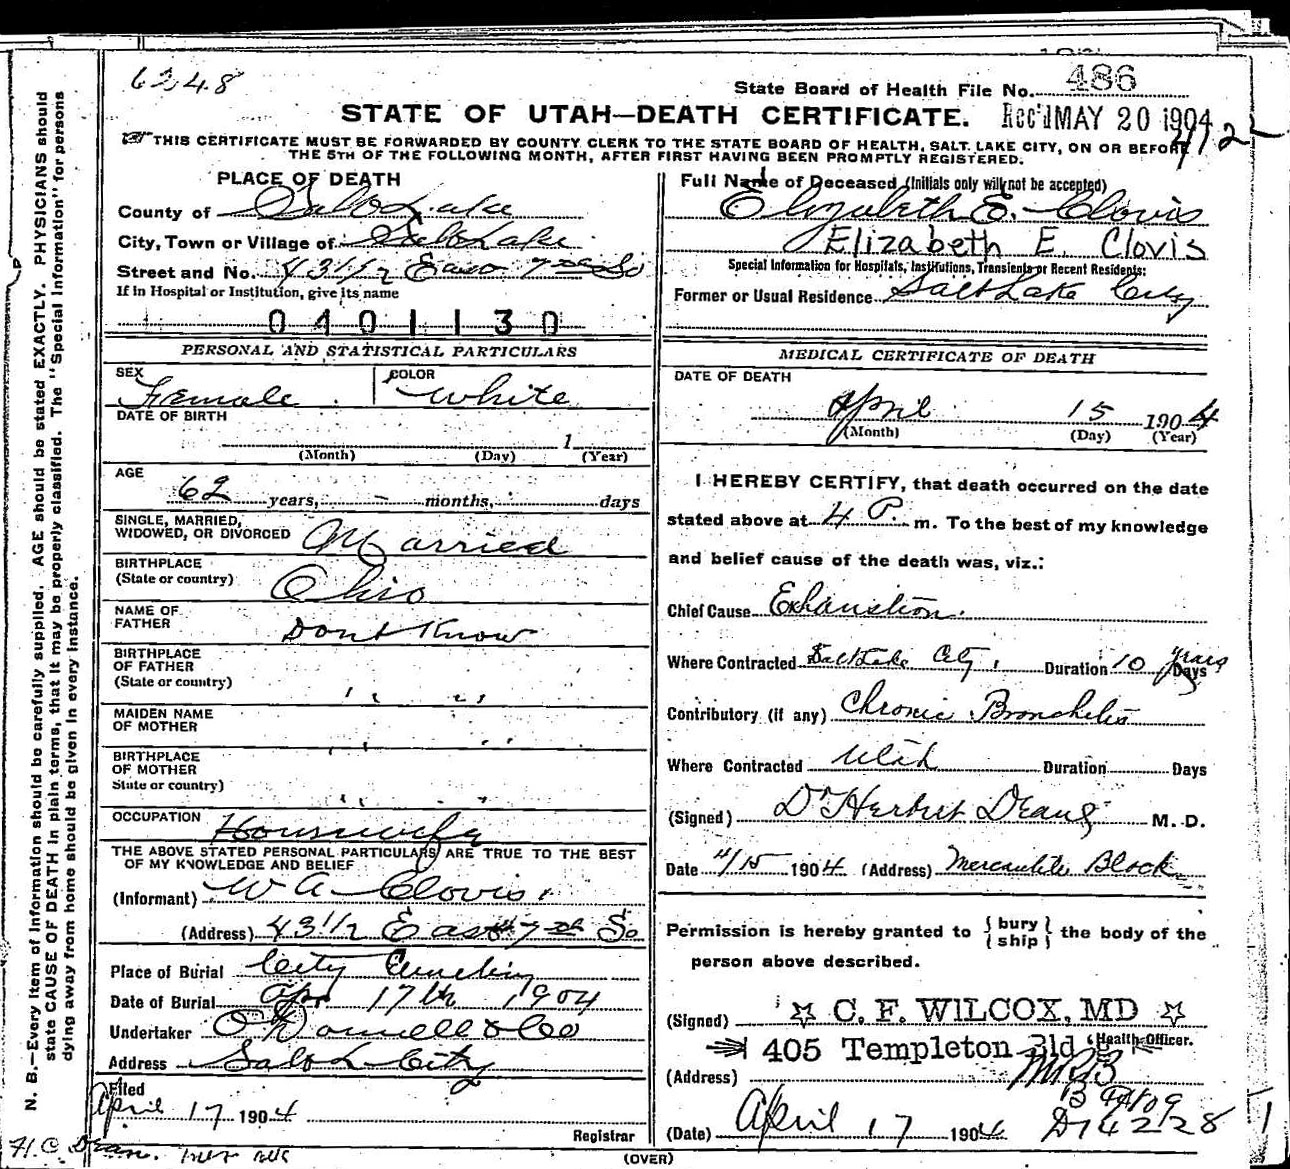 6248
State Board of Health File No. 486
STATE OF UTAH—DEATH CERTIFICATE. Rec'd MAY 20 1904
THIS CERTIFICATE MUST BE FORWARDED BY COUNTY CLERK TO THE STATE BOARD OF HEALTH, SALT LAKE CITY, ON OR BEFORE
THE 5TH OF THE FOLLOWING MONTH, AFTER FIRST HAVING BEEN PROMPTLY REGISTERED.
N. B.—Every item of information should be carefully supplied. AGE should be stated EXACTLY. PHYSICIANS should
state CAUSE OF DEATH in plain terms, that it may be properly classified. The "Special Information" for persons
dying away from home should be given in every instance.
PLACE OF DEATH
County of Salt Lake
City, Town or Village of Salt Lake
Street and No. 43 1/2 East 7th So
If in Hospital or Institution, give its name
0401130
PERSONAL AND STATISTICAL PARTICULARS
SEX Female COLOR White
DATE OF BIRTH
1
(Month) (Day) (Year)
AGE
62 years, - months, days
SINGLE, MARRIED,
WIDOWED, OR DIVORCED Married
BIRTHPLACE
(State or country) Ohio
NAME OF
FATHER Dont Know
BIRTHPLACE
OF FATHER
(State or country) " "
MAIDEN NAME
OF MOTHER " "
BIRTHPLACE
OF MOTHER
State or country) " "
OCCUPATION Housewife
THE ABOVE STATED PERSONAL PARTICULARS ARE TRUE TO THE BEST
OF MY KNOWLEDGE AND BELIEF
(Informant) W A Clovis
(Address) 43 1/2 East 7th So
Place of Burial City Cemetery
Date of Burial Apr 17th 1904
Undertaker O'Donnell & Co
Address Salt L City
Filed
April 17 1904
Registrar
H. C. Dean.
Full Name of Deceased (Initials only will not be accepted)
Elizabeth E. Clovis
Elizabeth E. Clovis
Special Information for Hospitals, Institutions, Transients or Recent Residents:
Former or Usual Residence Salt Lake City
MEDICAL CERTIFICATE OF DEATH
DATE OF DEATH
April 15 1904
(Month) (Day) (Year)
I HEREBY CERTIFY, that death occurred on the date
stated above at 4 P. m. To the best of my knowledge
and belief cause of the death was, viz.:
Chief Cause Exhaustion.
Where Contracted Salt Lake City, Duration 10 years Days
Contributory (if any) Chronic Bronchitis
Where Contracted Utah Duration Days
(Signed) Dr Herbert Deans M. D.
Date 4/15 1904 (Address) Mercantile Block
Permission is hereby granted to { bury / ship } the body of the
person above described.
(Signed) ☆ C. F. WILCOX, MD ☆
405 Templeton Bld'g Health Officer.
(Address)
(Date) April 17 1904 D 74228
(OVER)